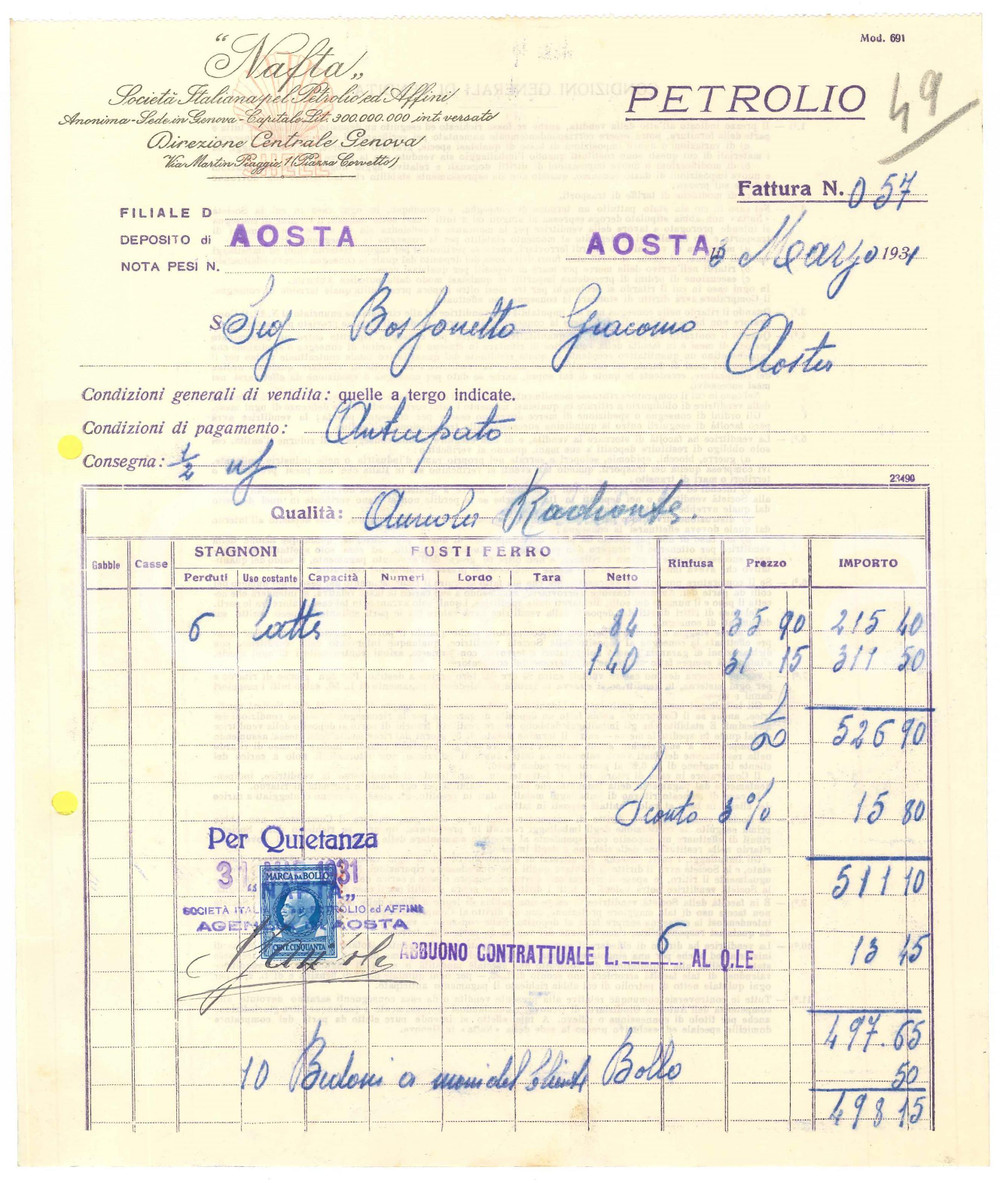 Mod. 691
"Nafta„
Società Italiana pel Petrolio ed Affini
Anonima - Sede in Genova - Capitale Lit. 300.000.000 int. versato
Direzione Centrale Genova
Via Martin Piaggio, 1 (Piazza Corvetto)
PETROLIO
49
Fattura N. 057
FILIALE D
DEPOSITO di AOSTA
NOTA PESI N.
AOSTA, Marzo 1931
Sig Giacomo
Aosta
Condizioni generali di vendita: quelle a tergo indicate.
Condizioni di pagamento: Anticipato
Consegna: 1/2
23490
Qualità: Aureola Radiante.
Gabbie Casse STAGNONI FUSTI FERRO Rinfusa Prezzo IMPORTO
Perduti Uso costante Capacità Numeri Lordo Tara Netto
6 Latte 84 35 90 215 40
140 31 15 311 50
526 90
Sconto 3% 15 80
Per Quietanza
31 1931
MARCA DA BOLLO
511 10
SOCIETÀ ITAL PETROLIO ed AFFINI
AGEN AOSTA
CENT. CINQUANTA
ABBUONO CONTRATTUALE L. 6 AL Q.LE 13 45
497.65
10 Bidoni a mani del Cliente Bollo 50
498 15